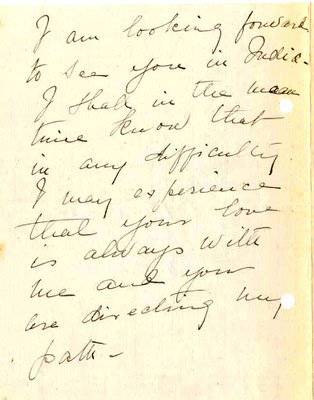 I am looking forward
to see you in India -
I shall in the mean
time know that
in any difficulty
I may experience
that your love
is always with
me and you
are directing my
path -